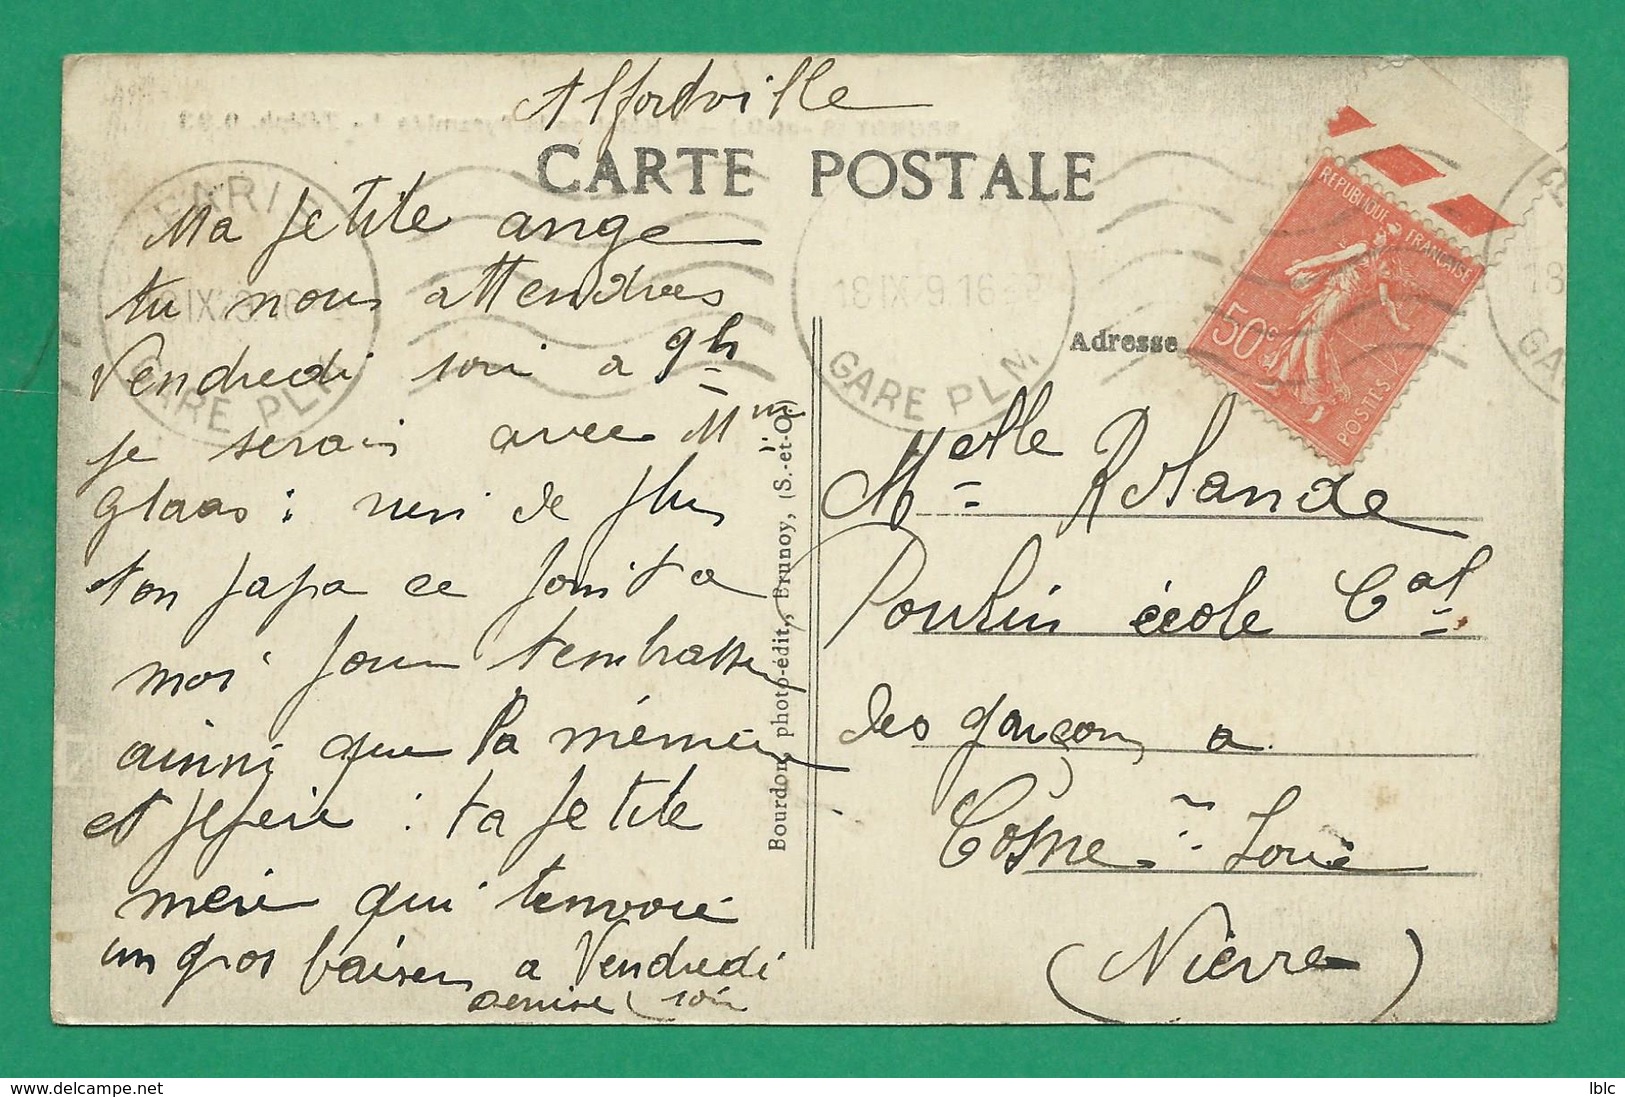 Alfordville
CARTE POSTALE
Ma petite ange
tu nous attendras
Vendredi soir a 9h
je serais avec Mme
glaas : rien de plus
ton papa ce joint a
moi pour tembrasse
ainsi que la mémère
et pepère : ta petite
mère qui tenvoie
un gros baiser a Vendredi
Denise soir
Bourdon, photo-édit., Brunoy, (S.-et-O.)
Adresse
Melle Rolande
Poulin école Cal
des garçons a
Cosne s/ Loire
(Nièvre)
REPUBLIQUE FRANÇAISE
50c
POSTES
PARIS
GARE PLM
18 IX 9 16
GARE PLM
18
GA
lblc